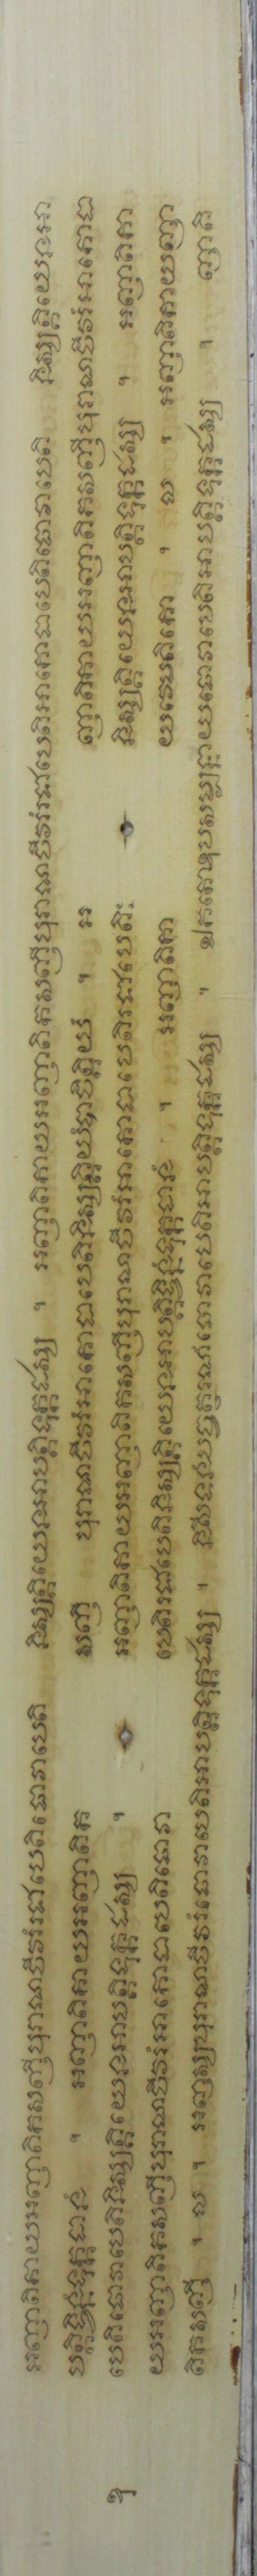 អញាតិកាយអញាតិកសញីបុរាណចីវរំរជាបេតិធោវាបេតិ និស្សគ្គិយេនអាបត្តិទុក្កដស្ស ។ អញាតិកាយអញាតិកសញីបុរាណចីវរំរជាបេតិអាកោដាបេតិធោវាបេតិ និស្សគ្គិយេនអា
បត្តិទ្វិន្នំទុក្កដានំ ។ អញាតិកាយអញាតិក សញី បុរាណចីវរំអាកោដាបេតិនិស្សគ្គិយំបាចិត្តិយំ ។ អ ញាតិកាយអញាតិកសញីបុរាណចីវរំអាកោដា
ខុ បេតិធោវាបេតិនិស្សគ្គិយេនអាបត្តិទុក្កដស្ស ។ អញាតិកាយអញាតិកសញីបុរាណចីវរំអាកោដាបេតិរជាបេតិៈ និស្សគ្គិយេនអាបត្តិទុក្កដស្ស ។ អញាតិកា
យអញាតិកសញីបុរាណចីវរំអាកោដាបេតិធោវា បេតិរជាបេតិនិស្សគ្គិយេនអាបត្តិទ្វិន្នំទុក្កដានំ ។ អញាតិកា យវេមតិកោ ។ ល ។ អញាតិកាយញា
តិកសញី ។ ល ។ អញស្សបុរាណចីវរំធោវាបេតិអាបត្តិទុក្កដស្ស ។ និសីទនំបច្ចត្ថរណំធោវាបេតិអាបត្តិទុក្កដស្ស ។ ឯកតោឧបសម្បន្នាយធោវាបេតិអាបត្តិទុក្កដស្ស ។ ញាតិ